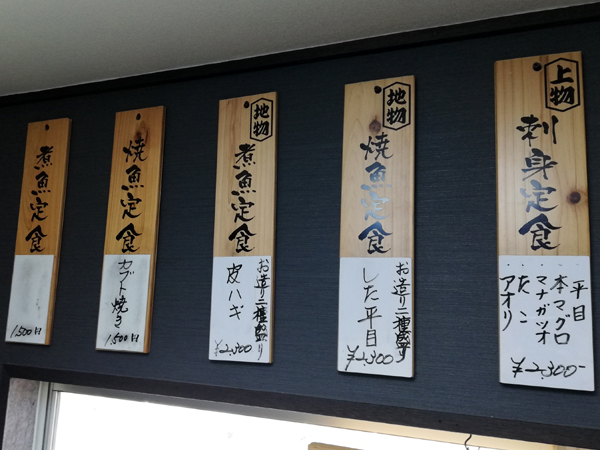 上物
刺身定食
平目
・本マグロ
・マナガツオ
・たこ
・アオリ
¥2,300-
地物
焼魚定食
お造り二種盛り
した平目
¥2,300
地物
煮魚定食
お造り二種盛り
皮ハギ
¥2,300
焼魚定食
カブト焼き
1,500円
煮魚定食
1,500円